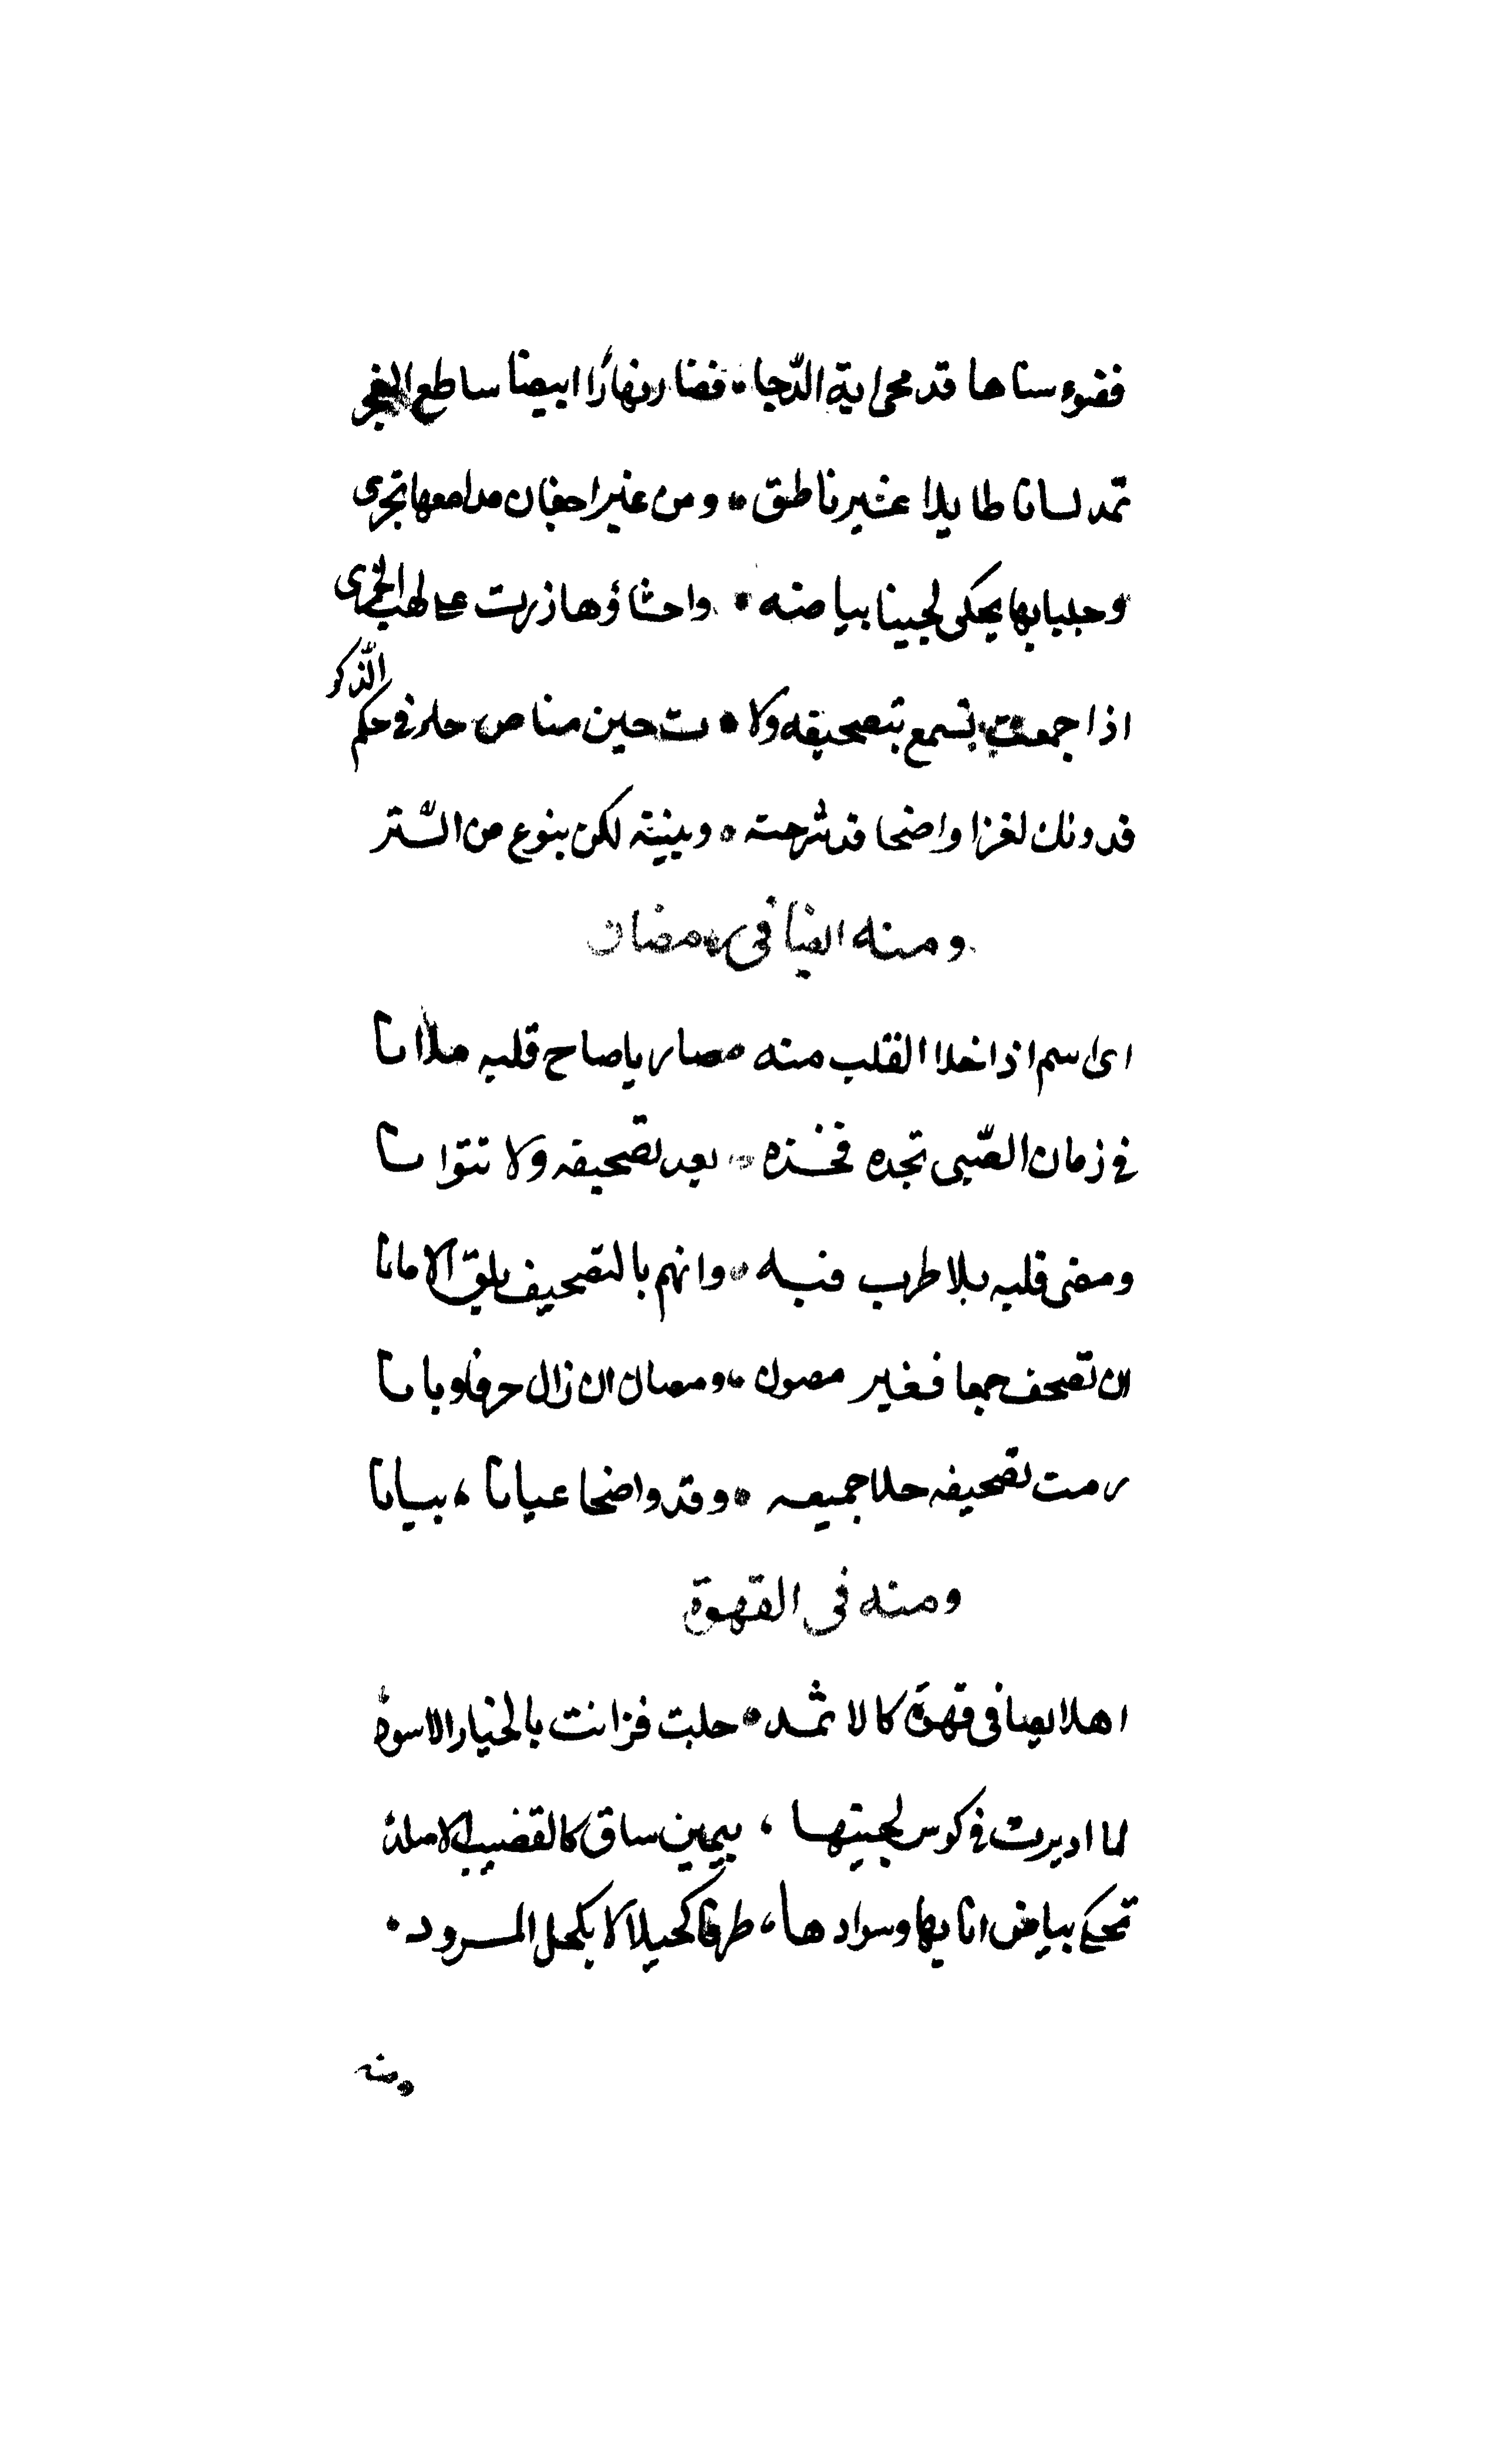 فضوء سناها قد محى اية الدّجا • فصار نهارًا ابيضا ساطع الفجر
تمد لسانا طايلا غير ناطق • ومن غير اجفان مدامعها تجرى
وجلبابها يحكى لجينا بياضه • واحشاؤها زرت على لهب الجمرى
اذا جمعت تسمع بتصحيفه ولا • ت حين مناص حله فى حكم الذكر
فدونك لغزا واضحا قد شرحته • وبينته لكن بنوع من السّتر
ومنه ايضا فى رمضان
اى اسم اذا خلا القلب منه صار يا صاح قلبه ملاانا
فى زمان الصّبى تجده فخذه • بعد تصحيفه ولا تتوانا
ومضى قلبه بلا طرب فنبه • وانهم بالتصحيف يلق الامانا
ان تصحف جمعا فغير مصون • ومصان ان زال حرف وبانا
رمت تصحيفه حلا جميعه • وقد واضحا عيانا، بيانا
ومنه فى القهوة
اهلا بصافى قهوة كالاثمد • جلبت فزانت بالخيار الاسود
لما اديرت فى كوس لجينها، بيمين ساق كالقضيب الاملد
تحكى بياض انايها وسوادها، طرفا كحيلا لا بكحل المسرود •
ومنه